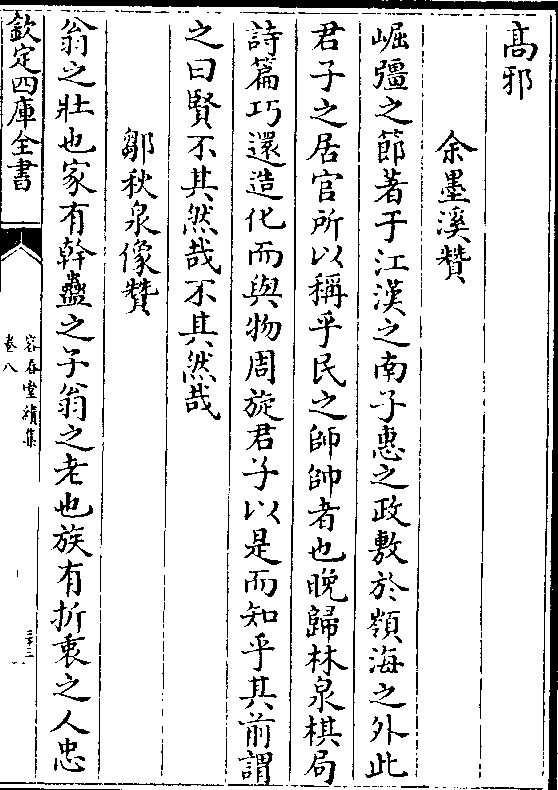 高邪
余墨溪贊
崛彊之節著于江漢之南子惠之政敷於嶺海之外此
君子之居官所以稱乎民之師帥者也晚歸林泉棋局
詩篇巧還造化而與物周旋君子以是而知乎其前謂
之曰賢不其然哉不其然哉
鄒秋泉像贊
翁之壯也家有幹蠱之子翁之老也族有折衷之人忠
欽定四庫全書
容春堂續集
卷八
三十三